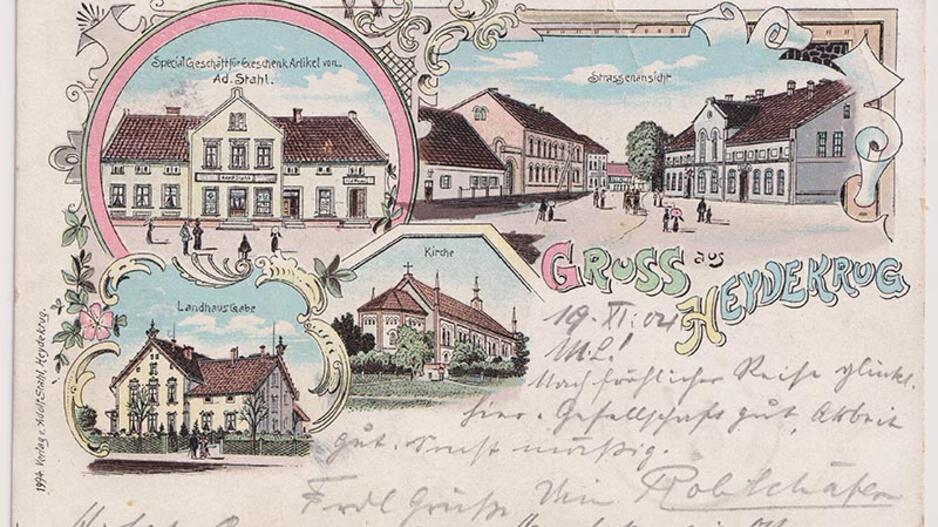 Special Geschäft für Geschenk Artikel von
Ad. Stahl.
Strassenansicht
Kirche
GRUSS aus
HEYDEKRUG
Landhaus Gabe
19. XI. 04
M. L!
Nach fröhlicher Reise glückl.
hier. Gesellschaft gut, Arbeit
gut. Sonst mäßig.
Frdl Grüße Dein Rob Schäfer
1994 Verlag v. Adolf Stahl, Heydekrug.